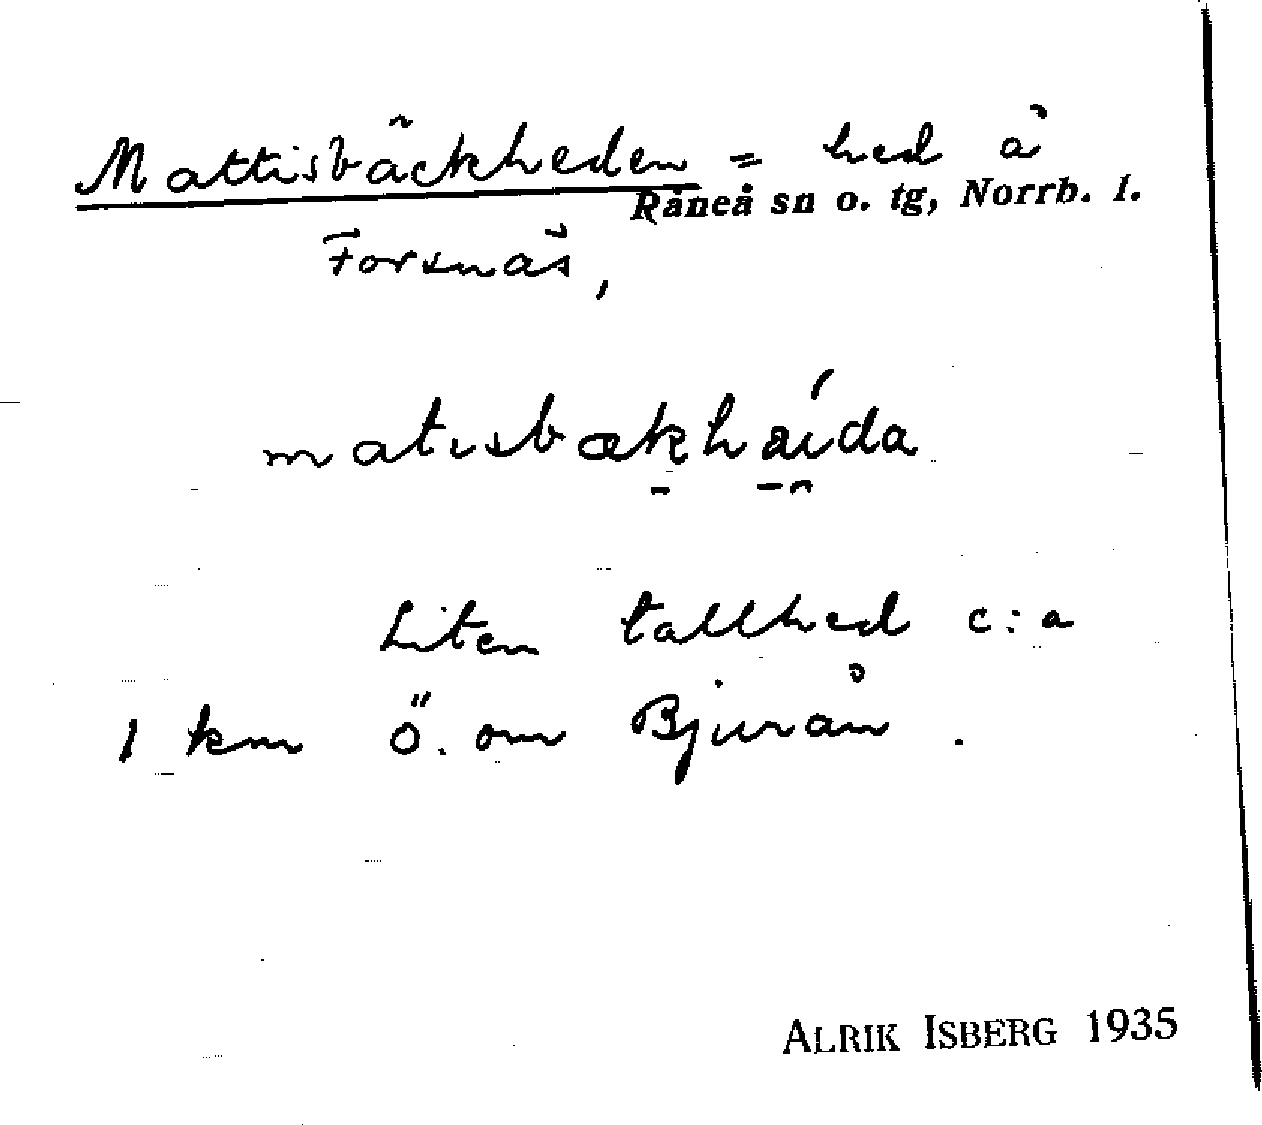 Mattisbäckheden = hed å
Råneå sn o. tg, Norrb. l.
Forsnäs,
matisbækhaída
Liten tallhed c:a
1 km Ö. om Bjurån.
ALRIK ISBERG 1935